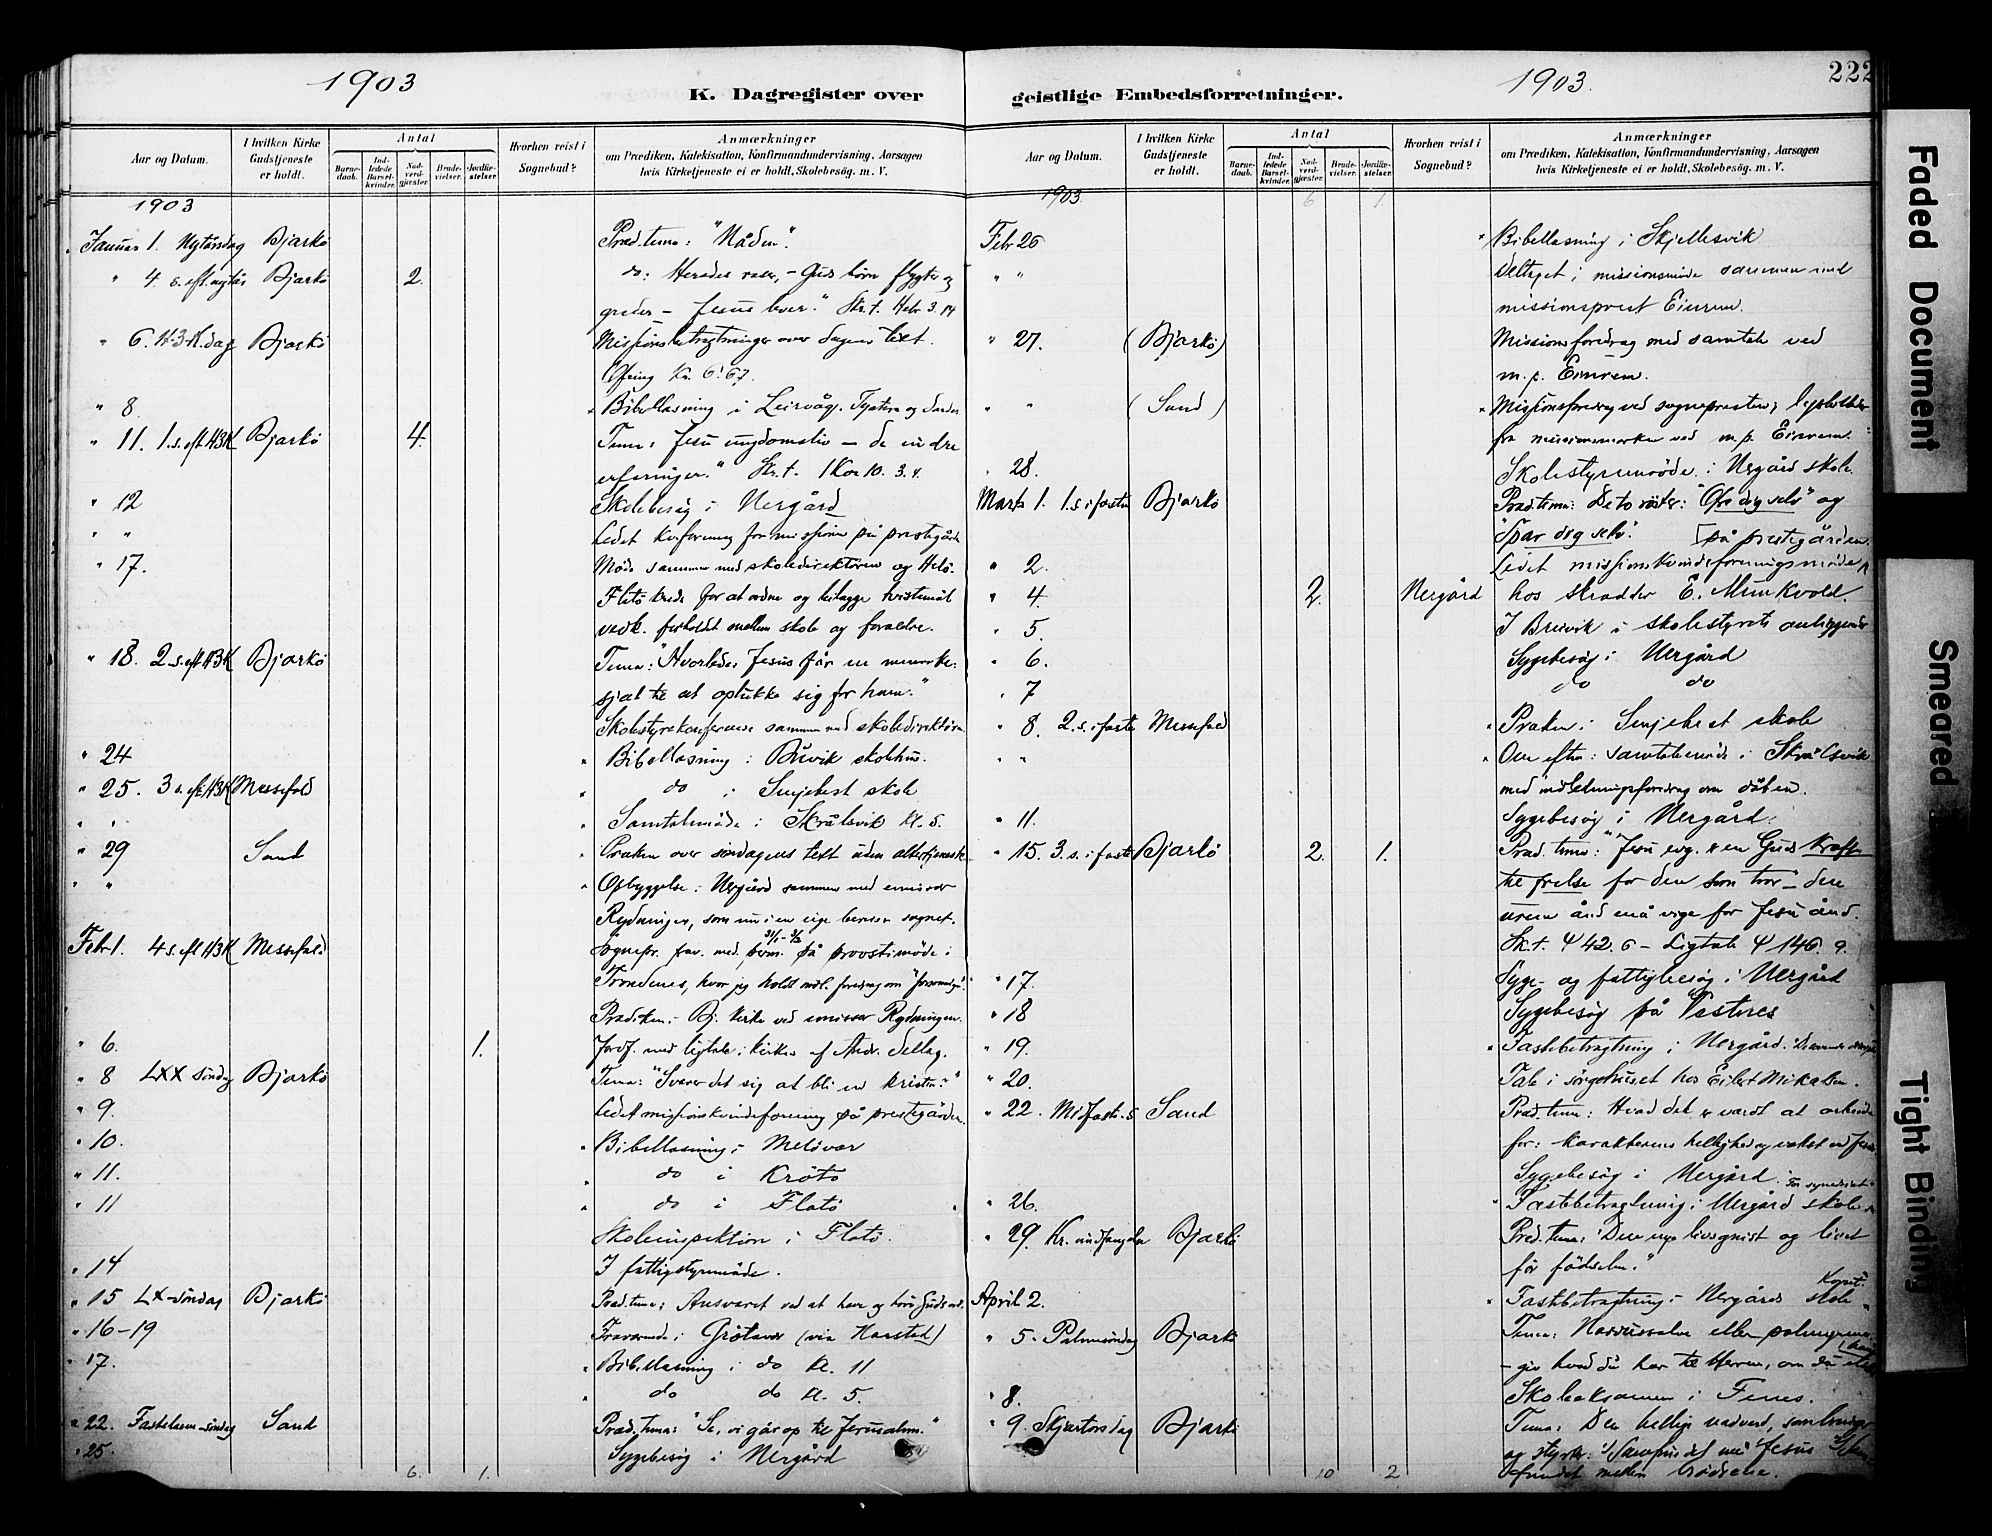 1903
K. Dagregister over
Aar og Datum.
I hvilken Kirke Gudstjeneste er holdt.
Antal
Barne-daab.
Ind-ledede Barsel-kvinder.
Nad-verd-gjæster.
Brude-vielser.
Jordfæ-stelser.
Hvorhen reist i Sognebud?
Anmærkninger
om Prædiken, Katekisation, Konfirmandundervisning, Aarsagen
hvis Kirketjeneste ei er holdt, Skolebesøg. m. V.
1903
Januar 1. Nytårsdag Bjarkö Præd. tema: "Nåden".
" 4 s. eft. nytår Bjarkö 2. do: Herodes raser, – Guds börn flygter og
græder – Jesus lever." Skr. t. Hebr 3. 14
" 6. H-3-K. dag Bjarkö Missionsbetragtninger over dagens text.
Ofring Kr. 6.67.
" 8 Bibellæsning i Leirvåg.
" 11. 1. s. eft H3K Bjarkö 4. Tema: Jesu ungdomsliv – de indre
erfaringer." Skr. t. 1 Kor 10. 3. 4.
" 12 Skolebesög i Nergård
" " Ledet kv.forening for missionen på prestegården
" 17. Möde sammen med skoledirektören og Helö-
Flatö kreds for at ordne og bilægge tvistemål
vedk. forholdet mellem skole og forældre.
" 18. 2. s. eft H3K Bjarkö Tema: "Hvorledes Jesus får en menneske-
sjæl til at oplukke sig for ham."
Skolestyrekonference sammen med skoledirektören
" 24 Bibellæsning i skolehus.
" 25. 3 s. eft H3K Messefold do i Senjehest skole
" " Samtalemöde i Skrålsvik kl. 5.
" 29 Sand Præken over söndagens text uden altertjeneste
" " Opbyggelse i Nergård sammen med emissær
Rydningen, som nu i en uge bereiser sognet.
Febr 1. 4 s. eft H3K Messefold Sognepr. frav. med. perm. 31/1 – 3/2 på provstimöde i
Trondenes, hvor jeg holdt indl. foredrag om
Prædiken i Bj. kirke ved emissær Rydningen.
" 6. 1. Jordf. med ligtale i kirken af Andr. Dellag.
" 8 LXX söndag Bjarkö Tema: "Svarer det sig at bli en kristen?"
" 9. Ledet missionskvindeforening på prestegården
" 10. Bibellæsning i Melövær
" 11. do i Krötö
" 11 do i Flatö
Skoleinspektion i Flatö.
" 14 I fattigstyremöde.
" 15 LX-söndag Bjarkö Præd. tema: Ansvaret ved at have og höre Guds ord.
" 16–19 Fraværende i Grötavær (via Harstad)
" 17. Bibellæsning i do kl. 11
do do kl. 5.
" 22. Fastelavn-söndag Sand Præd. tema: "Se, vi går op til Jerusalem."
" 25. Sygebesög i Nergård
6. 1.
geistlige Embedsforretninger.
1903.
222
Aar og Datum.
I hvilken Kirke Gudstjeneste er holdt.
Antal
Barne-daab.
Ind-ledede Barsel-kvinder.
Nad-verd-gjæster.
Brude-vielser.
Jordfæ-stelser.
Hvorhen reist i Sognebud?
Anmærkninger
om Prædiken, Katekisation, Konfirmandundervisning, Aarsagen
hvis Kirketjeneste ei er holdt, Skolebesøg. m. V.
1903 6 1.
Febr 26 Bibellæsning i Skjellesvik
" " Deltaget i missionsmöde sammen med
missionsprest Einrem.
" 27. (Bjarkö) Missionsforedrag med samtale ved
m. p. Einrem.
" " (Sand) Missionsforedrag ved sognepresten; lysbilleder
fra missionsmarken ved m. p. Einrem.
" 28. Skolestyremöde i Nergård skole
Marts 1. 1. s. i fasten Bjarkö Præd. tema: De to röster: "Ofre dig selv" og
"Spar dig selv". [på prestegården.
" 2. Ledet missionskvindeforeningsmöde
" 4. 2. Nergård hos skrædder E. Munkvold.
" 5. I Breivik i skolestyrets anliggender
" 6. Sygebesög i Nergård
" 7 do do
" 8. 2. s. i faste Messefold Præken i Senjehest skole
" " Om efterm. samtalemöde i Skrålsvik
med indledningsforedrag om dåben.
" 11. Sygebesög i Nergård.
" 15. 3. s. i faste Bjarkö 2. 1. Præd. tema: "Jesu evg. er en Guds kraft
til frelse for den som tror – den
urene ånd må vige for Jesu ånd.
Sk. t. Ψ 42. 6 – Ligtale Ψ 146. 9.
" 17. Syge- og fattigbesög i Nergård
" 18 Sygebesög på Vestnes
" 19. Fastebetragtning i Nergård.
" 20. Tale i sörgehuset hos Eilert Mikalsen.
" 22. Midfaste-s Sand Præd. tema: Hvad det er værdt at arbeide
for: karakterens hellighed og vækst
Sygebesög i Nergård
" 26. Fastebetragtning i Nergård skole
" 29. Kr. undfangelse Bjarkö Præd. tema: "Den nye livsgnist og livet
för födselen."
April 2. Fastebetragtning i Nergårds skole
" 5. Palmesöndag Bjarkö Tema: Nardussalve eller palmegrene
– giv hvad du har til Herren, om du
" 8. Skoleeksamen i Fenes.
" 9. Skjærtorsdag Bjarkö Tema: Den hellige nadverd,
og styrker: 1/ Samfundet med Jesus
Samfundet mellem brödrene.
10 2
Faded Document
Smeared
Tight Binding